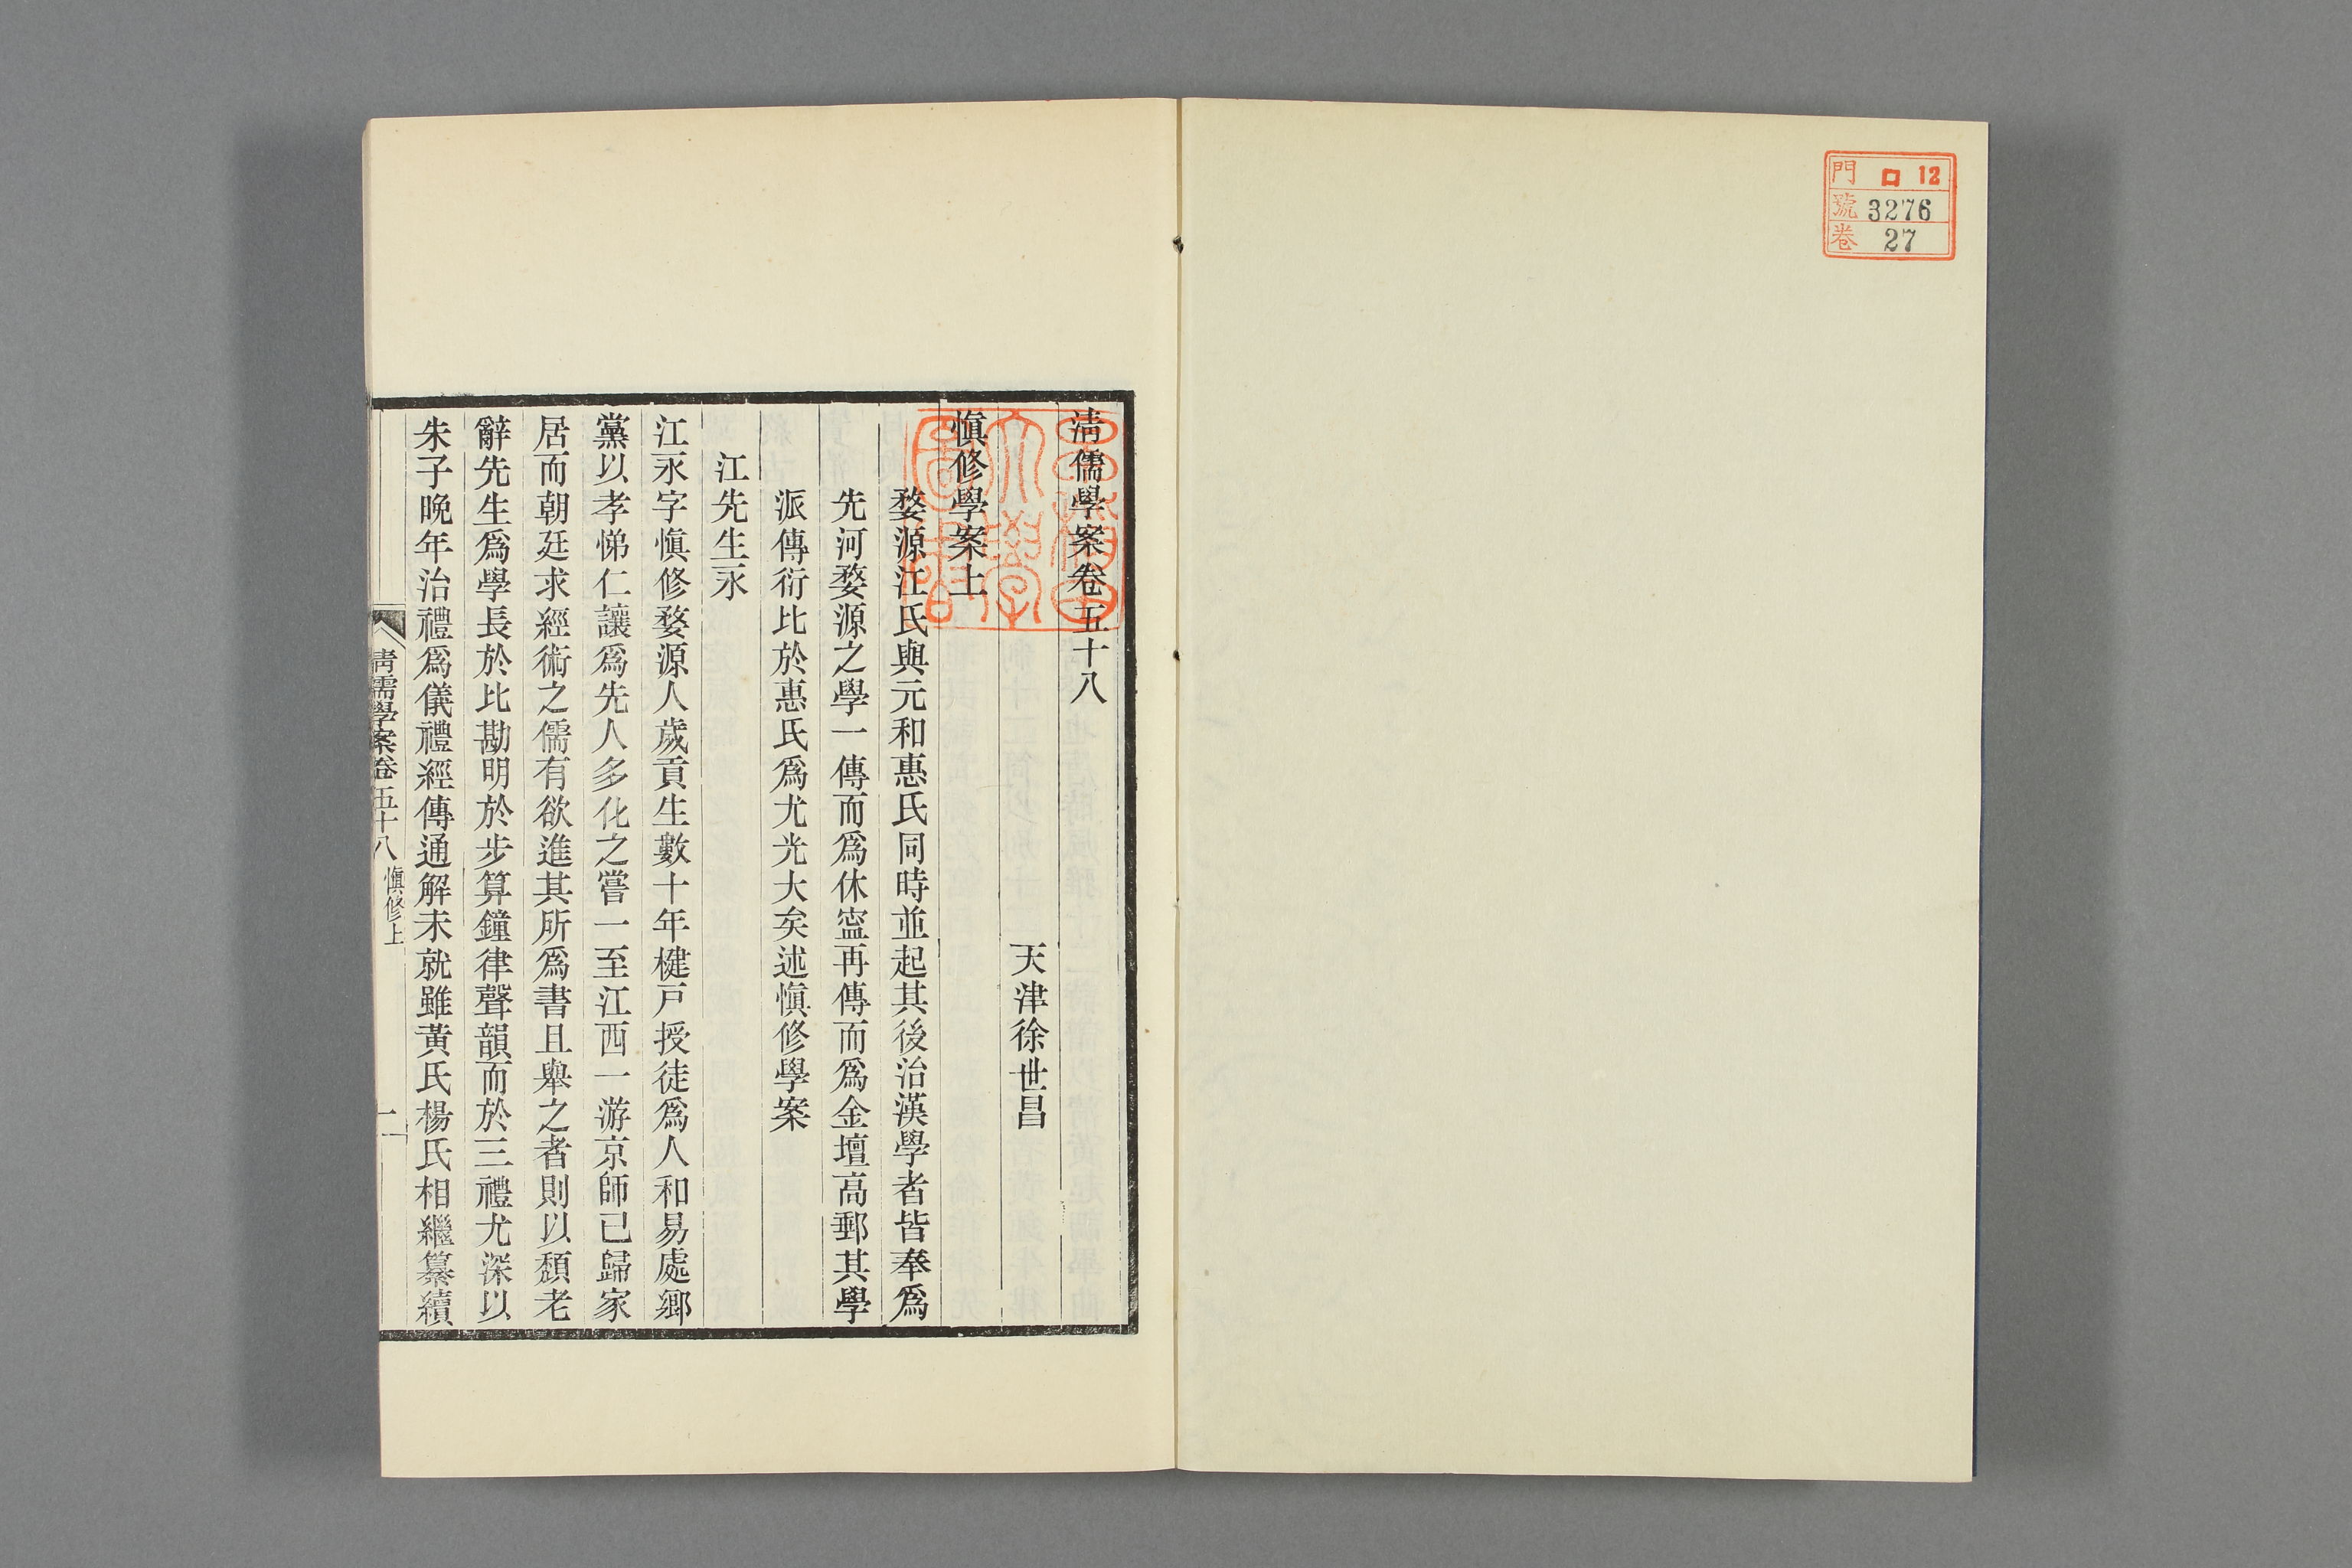 門 ロ 12
號 3276
卷 27
清儒學案卷五十八
天津徐世昌
愼修學案上
婺源江氏與元和惠氏同時並起其後治漢學者皆奉爲
先河婺源之學一傳而爲休寍再傳而爲金壇高郵其學
派傳衍比於惠氏爲尤光大矣述愼修學案
江先生永
江永字愼修婺源人歲貢生數十年楗戸授徒爲人和易處鄉
黨以孝悌仁讓爲先人多化之嘗一至江西一游京師已歸家
居而朝廷求經術之儒有欲進其所爲書且舉之者則以頽老
辭先生爲學長於比勘明於步算鐘律聲韻而於三禮尤深以
朱子晚年治禮爲儀禮經傳通解未就雖黃氏楊氏相繼纂續
清儒學案卷五十八 愼修上 一
早稻田大學圖書